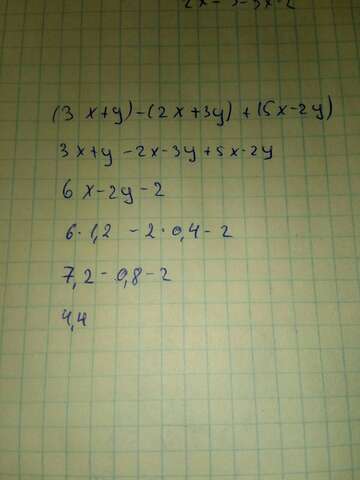 (3 x+y)-(2x+3y)+(5x-2y)
3x+y-2x-3y+5x-2y
6x-2y-2
6·1,2 -2·0,4-2
7,2-0,8-2
4,4